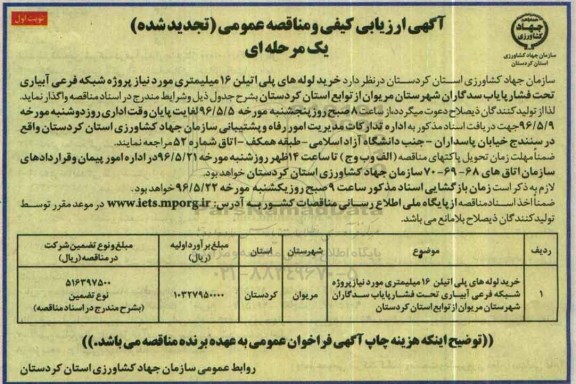 نوبت اول
آگهی ارزیابی کیفی و مناقصه عمومی (تجدید شده)
یک مرحله ای
جهاد کشاورزی
سازمان جهاد کشاورزی
استان کردستان
سازمان جهاد کشاورزی استان کردستان درنظر دارد خرید لوله های پلی اتیلن ۱۶ میلیمتری مورد نیاز پروژه شبکه فرعی آبیاری
تحت فشار پایاب سد گاران شهرستان مریوان از توابع استان کردستان بشرح جدول ذیل و شرایط مندرج در اسناد مناقصه واگذار نماید.
لذا از تولیدکنندگان ذیصلاح دعوت میگردد از ساعت ۸ صبح روز پنجشنبه مورخه ۹۶/۵/۵ لغایت پایان وقت اداری روز دوشنبه مورخه
۹۶/۵/۹ جهت دریافت اسناد مذکور به اداره تدارکات مدیریت امور رفاه و پشتیبانی سازمان جهاد کشاورزی استان کردستان واقع
در سنندج خیابان پاسداران - جنب دانشگاه آزاد اسلامی - طبقه همکف - اتاق شماره ۵۲ مراجعه نمایند.
ضمناً مهلت زمان تحویل پاکتهای مناقصه (الف وب وج) تا ساعت ۱۴ظهر روز شنبه مورخه ۹۶/۵/۲۱ در اداره امور پیمان و قراردادهای
سازمان اتاق های ۶۸- ۶۹- ۷۰ سازمان جهاد کشاورزی استان کردستان خواهد بود.
لازم به ذکر است زمان بازگشایی اسناد مذکور ساعت ۹ صبح روز یکشنبه مورخه ۹۶/۵/۲۲ خواهد بود.
ضمناً اخذ اسناد مناقصه از پایگاه ملی اطلاع رسانی مناقصات کشور به آدرس: www.iets.mporg.ir در موعد مقرر توسط
تولیدکنندگان ذیصلاح بلامانع می باشد.
ردیف موضوع شهرستان استان مبلغ برآورد اولیه (ریال) مبلغ و نوع تضمین شرکت در مناقصه (ریال)
۱ خرید لوله های پلی اتیلن ۱۶ میلیمتری مورد نیاز پروژه شبکه فرعی آبیاری تحت فشار پایاب سد گاران شهرستان مریوان از توابع استان کردستان مریوان کردستان ۱۰۳۲۷۹۵۰۰۰۰ ۵۱۶۳۹۷۵۰۰ نوع تضمین (بشرح مندرج در اسناد مناقصه)
((توضیح اینکه هزینه چاپ آگهی فراخوان عمومی به عهده برنده مناقصه می باشد.))
روابط عمومی سازمان جهاد کشاورزی استان کردستان